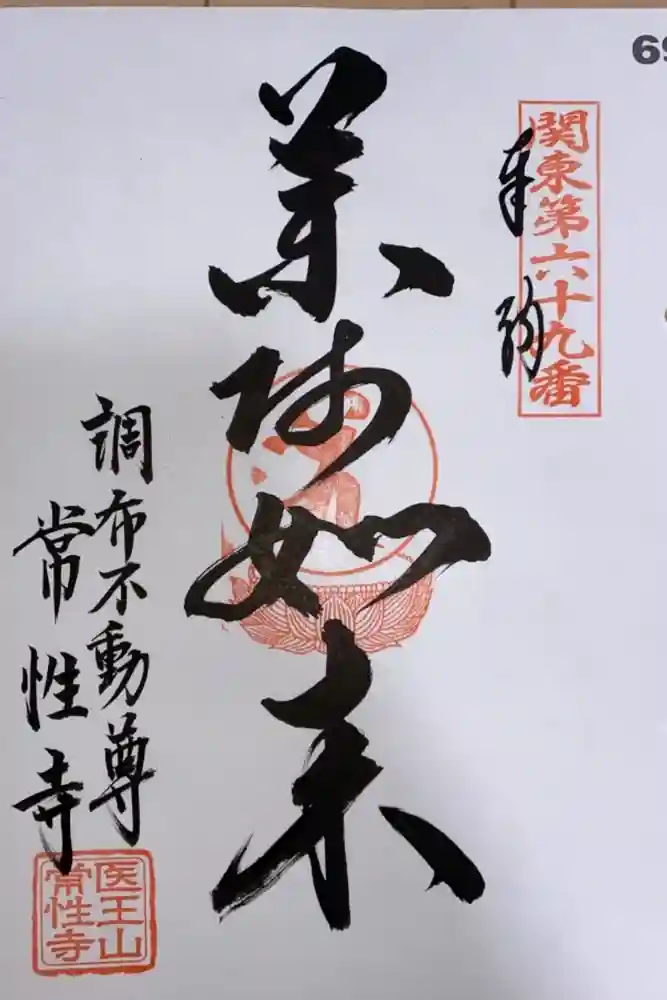 69
関東第六十九番
奉納
薬師如来
調布不動尊
常性寺
医王山
常性寺